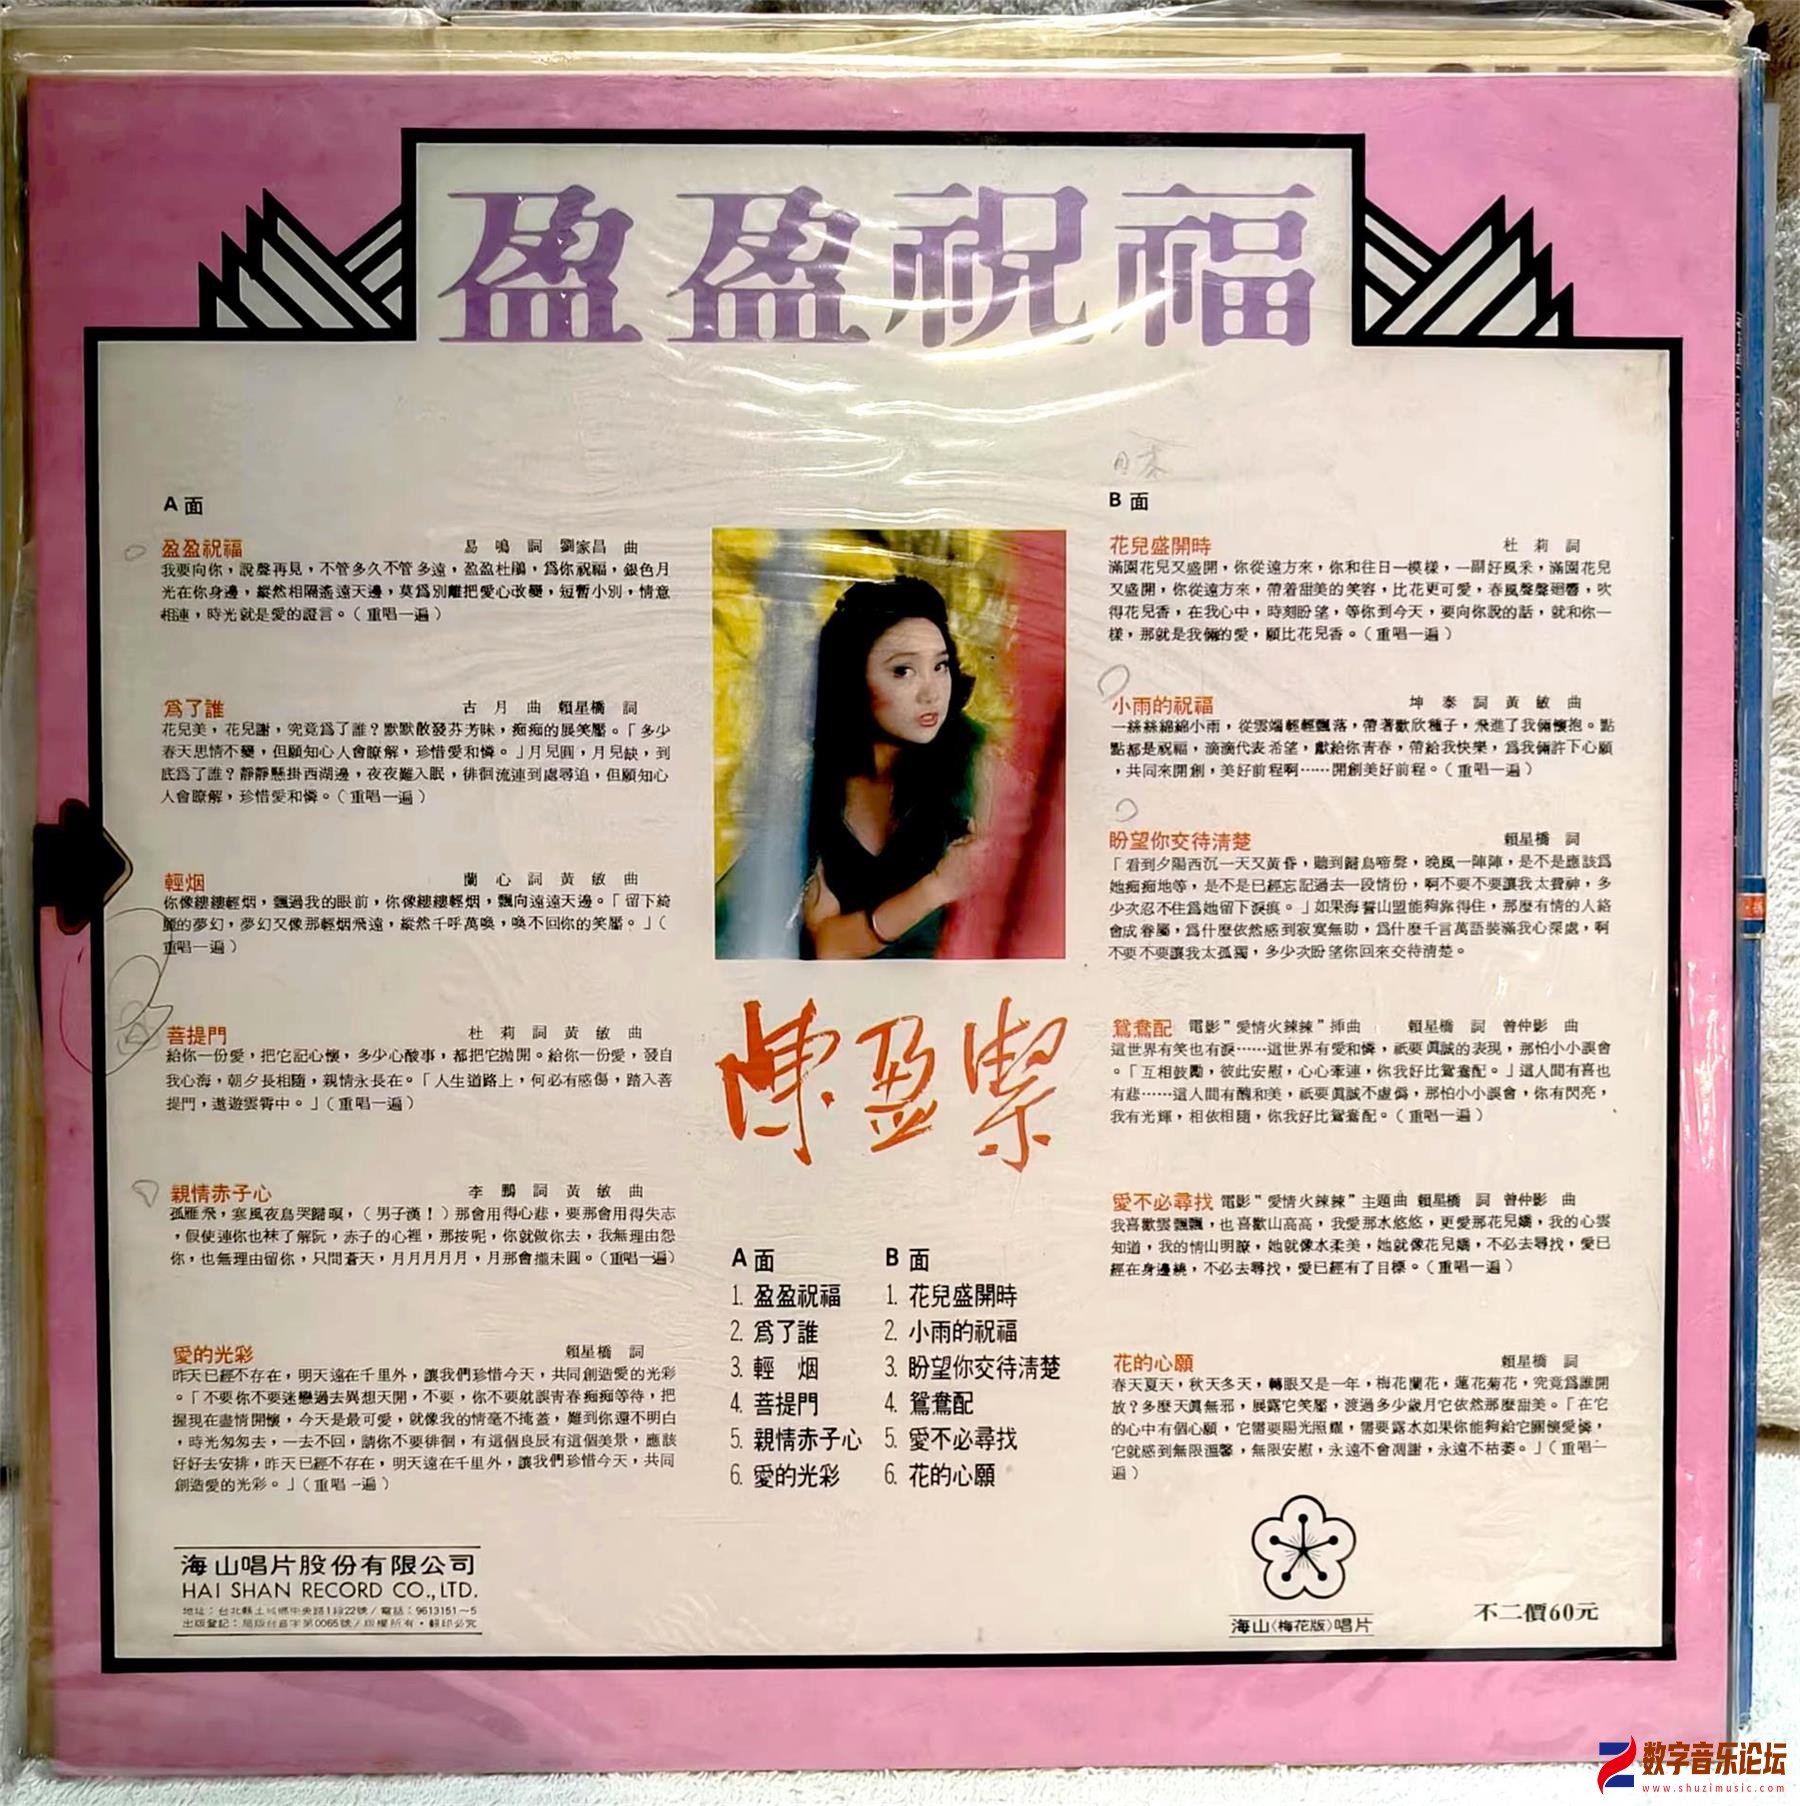 盈盈祝福
A面
盈盈祝福 易鳴詞 劉家昌曲
我要向你，說聲再見，不管多久不管多遠，盈盈杜鵑，爲你祝福，銀色月
光在你身邊，縱然相隔遙遠天邊，莫爲別離把愛心改變，短暫小別，情意
相連，時光就是愛的證言。（重唱一遍）
爲了誰 古月曲 賴星橋詞
花兒美，花兒謝，究竟爲了誰？默默散發芬芳味，痴痴的展笑靨。「多少
春天思情不變，但願知心人會瞭解，珍惜愛和憐。」月兒圓，月兒缺，到
底爲了誰？靜靜懸掛西湖邊，夜夜難入眠，徘徊流連到處尋追，但願知心
人會瞭解，珍惜愛和憐。（重唱一遍）
輕烟 蘭心詞 黃敏曲
你像縷縷輕烟，飄過我的眼前，你像縷縷輕烟，飄向遠遠天邊。「留下綺
麗的夢幻，夢幻又像那輕烟飛遠，縱然千呼萬喚，喚不回你的笑靨。」（
重唱一遍）
菩提門 杜莉詞 黃敏曲
給你一份愛，把它記心懷，多少心酸事，都把它拋開。給你一份愛，發自
我心海，朝夕長相隨，親情永長在。「人生道路上，何必有感傷，踏入菩
提門，遨遊雲霄中。」（重唱一遍）
親情赤子心 李鵬詞 黃敏曲
孤雁飛，寒風夜鳥哭歸暝，（男子漢！）那會用得心悲，要那會用得失志
，假使連你也袜了解阮，赤子的心裡，那按呢，你就做你去，我無理由怨
你，也無理由留你，只問蒼天，月月月月月，月那會攏未圓。（重唱一遍）
愛的光彩 賴星橋詞
昨天已經不存在，明天遠在千里外，讓我們珍惜今天，共同創造愛的光彩
。「不要你不要迷戀過去異想天開，不要，你不要就誤青春痴痴等待，把
握現在盡情開懷，今天是最可愛，就像我的情毫不掩蓋，難到你還不明白
，時光匆匆去，一去不回，請你不要徘徊，有這個良辰有這個美景，應該
好好去安排，昨天已經不存在，明天遠在千里外，讓我們珍惜今天，共同
創造愛的光彩。」（重唱一遍）
海山唱片股份有限公司
HAI SHAN RECORD CO.,LTD.
地址：台北縣土城鄉中央路1段22號／電話：9613151～5
出版登記：局版台音字第0065號／版權所有・翻印必究
陳盈潔
A面
1. 盈盈祝福
2. 爲了誰
3. 輕 烟
4. 菩提門
5. 親情赤子心
6. 愛的光彩
B面
1. 花兒盛開時
2. 小雨的祝福
3. 盼望你交待清楚
4. 鴛鴦配
5. 愛不必尋找
6. 花的心願
B面
花兒盛開時 杜莉詞
滿園花兒又盛開，你從遠方來，你和往日一模樣，一副好風釆，滿園花兒
又盛開，你從遠方來，帶着甜美的笑容，比花更可愛，春風聲聲廻響，吹
得花兒香，在我心中，時刻盼望，等你到今天，要向你說的話，就和你一
樣，那就是我倆的愛，願比花兒香。（重唱一遍）
小雨的祝福 坤泰詞 黃敏曲
一絲絲綿綿小雨，從雲端輕輕飄落，帶著歡欣種子，飛進了我倆懷抱。點
點都是祝福，滴滴代表希望，獻給你青春，帶給我快樂，爲我倆許下心願
，共同來開創，美好前程啊……開創美好前程。（重唱一遍）
盼望你交待清楚 賴星橋詞
「看到夕陽西沉一天又黃昏，聽到歸鳥啼聲，晚風一陣陣，是不是應該爲
她痴痴地等，是不是已經忘記過去一段情份，啊不要不要讓我太費神，多
少次忍不住爲她留下淚痕。」如果海誓山盟能夠靠得住，那麼有情的人終
會成眷屬，爲什麼依然感到寂寞無助，爲什麼千言萬語裝滿我心深處，啊
不要不要讓我太孤獨，多少次盼望你回來交待清楚。
鴛鴦配 電影"愛情火辣辣"揷曲 賴星橋詞 曾仲影曲
這世界有笑也有淚……這世界有愛和憐，祇要眞誠的表現，那怕小小誤會
。「互相鼓勵，彼此安慰，心心牽連，你我好比鴛鴦配。」這人間有喜也
有悲……這人間有醜和美，祇要眞誠不虛僞，那怕小小誤會，你有閃亮，
我有光輝，相依相隨，你我好比鴛鴦配。（重唱一遍）
愛不必尋找 電影"愛情火辣辣"主題曲 賴星橋詞 曾仲影曲
我喜歡雲飄飄，也喜歡山高高，我愛那水悠悠，更愛那花兒嬌，我的心雲
知道，我的情山明瞭，她就像水柔美，她就像花兒嬌，不必去尋找，愛已
經在身邊繞，不必去尋找，愛已經有了目標。（重唱一遍）
花的心願 賴星橋詞
春天夏天，秋天冬天，轉眼又是一年，梅花蘭花，蓮花菊花，究竟爲誰開
放？多麼天眞無邪，展露它笑靨，渡過多少歲月它依然那麼甜美。「在它
的心中有個心願，它需要陽光照耀，需要露水如果你能夠給它關懷愛憐，
它就感到無限溫馨，無限安慰，永遠不會凋謝，永遠不枯萎。」（重唱一
遍）
海山（梅花版）唱片
不二價60元
数字音乐论坛
www.shuzimusic.com